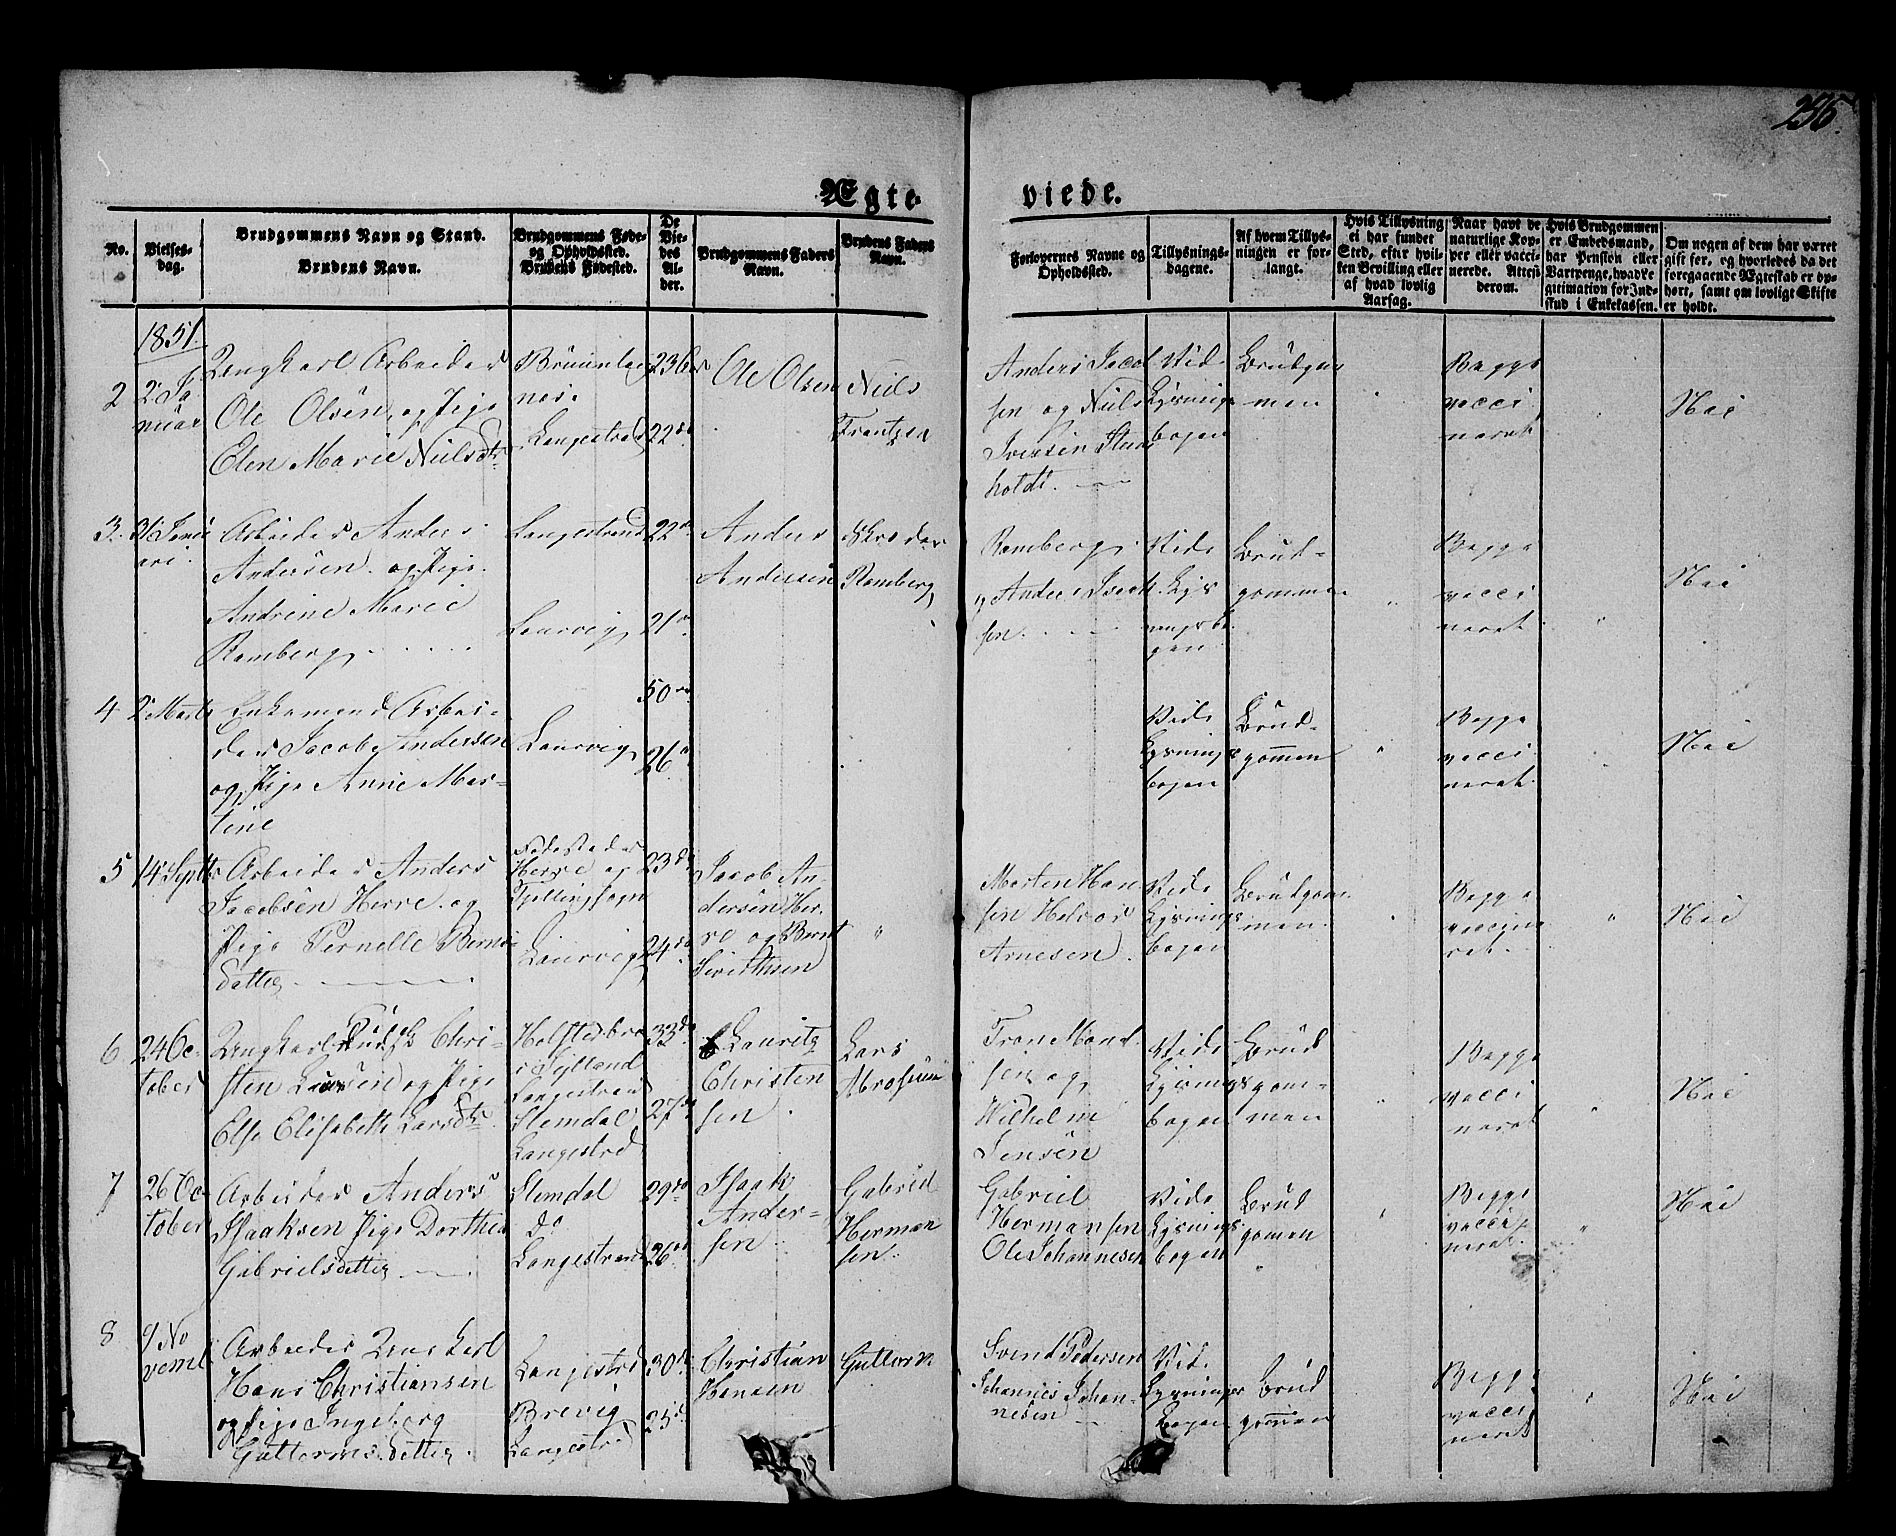 236.
Ægte
viede.
No.
Vielses-
dag.
Brudgommens Navn og Stand.
Brudens Navn.
Brudgommens Føde-
og Opholdssted.
Brudens Fødested.
De
Vie-
des
Al-
der.
Brudgommens Faders
Navn.
Brudens Faders
Navn.
Forlovernes Navne og
Opholdssted.
Tillysnings-
dagene.
Af hvem Tillys-
ningen er for-
langt.
Hvis Tillysning
ei har fundet
Sted, efter hvil-
ken Bevilling eller
af hvad lovlig
Aarsag.
Naar havt de
naturlige Kop-
per eller vacci-
nerede. Attest
derom.
Hvis Brudgommen
er Embedsmand,
har Pension eller
Vartpenge, hvad Le-
gitimation for Ind-
skud i Enkekassen.
Om nogen af dem har været
gift før, og hvorledes da det
foregaaende Ægteskab er op-
hørt, samt om lovligt Skifte
er holdt.
1851.
2
2 Ja
nuar
Ungkarl Arbeider
Ole Olsen, og Pige
Elen Marie Nielsdtr
Langestrand
23
22
Ole Olsen
Niels
Frantzen
Anders Jacob
sen og Niels
Iversen
holdt.
Vide
Lysnings
bogen
Brudgom
men
Begge
vacci
neret
Nei
3.
31 Janu
ari.
Arbeider Anders
Andersen og Pige
Andrine Marie
Ramberg
Langestrand
Laurvig
22
21
Anders
Andersen
Schrøder
Ramberg
Ramberg
og Anders Isaak
sen.
Vide
Lys
nings bo
gen
Brud-
gommen
Begge
vacci
neret.
Nei
4
2 Marts
Enkemand Arbei-
der Jacob Andersen
og Pige Anne Mar-
tine
Laurvig
50
26
Vide
Lysnings
bogen
Brud-
gommen
Begge
vacci
neret.
Nei
5
14 Septb
Arbeider Anders
Jacobsen Herre og
Pige Pernelle Bernts
datter
Fødesteder
Herre og
Tjøllingsogn
Laurvig
23
24
Jacob An-
dersen Her-
re og Bernt
"
Morten Han
sen Halvor
Arnesen.
Vide
Lysnings
bogen
Brudgom
men.
Begge
vaccine
ret.
"
Nei
6
24 Oc-
tober
Ungkarl Chri-
sten og Pige
Else Elisabeth Larsdtr.
Holstebro
i Jylland
Langestrand
Slemdal
Langestrd
33
27
Lauritz
Christen
sen
Lars
Wilhelm
Jensen
Vide
Lysnings
bogen
Brud
gom-
men
Begge
vacci
neret
Nei
7
26 Oc-
tober
Arbeider Anders
Isaaksen Pige Dorthea
Gabrielsdatter
Slemdal
do
Langestrand
29
26
Isaak
Ander-
sen
Gabriel
Herman
sen.
Gabriel
Hermansen
Ole Johannesen
Vide
Lysnings
bogen
Brud
gommen
Begge
vacci
neret.
"
Nei
8
9 No
vemb.
Arbeider Ungkarl
Hans Christiansen
og Pige Ingeborg
Guttormsdatter.
Langestrd
Brevig
Langestrd
30
25
Christian
Hansen
Guttorm
Svend Pedersen
Johannes Johan-
nesen
Vide
Lysnings
Bogen
Brud
gommen
Begge
vacci
neret
Nei